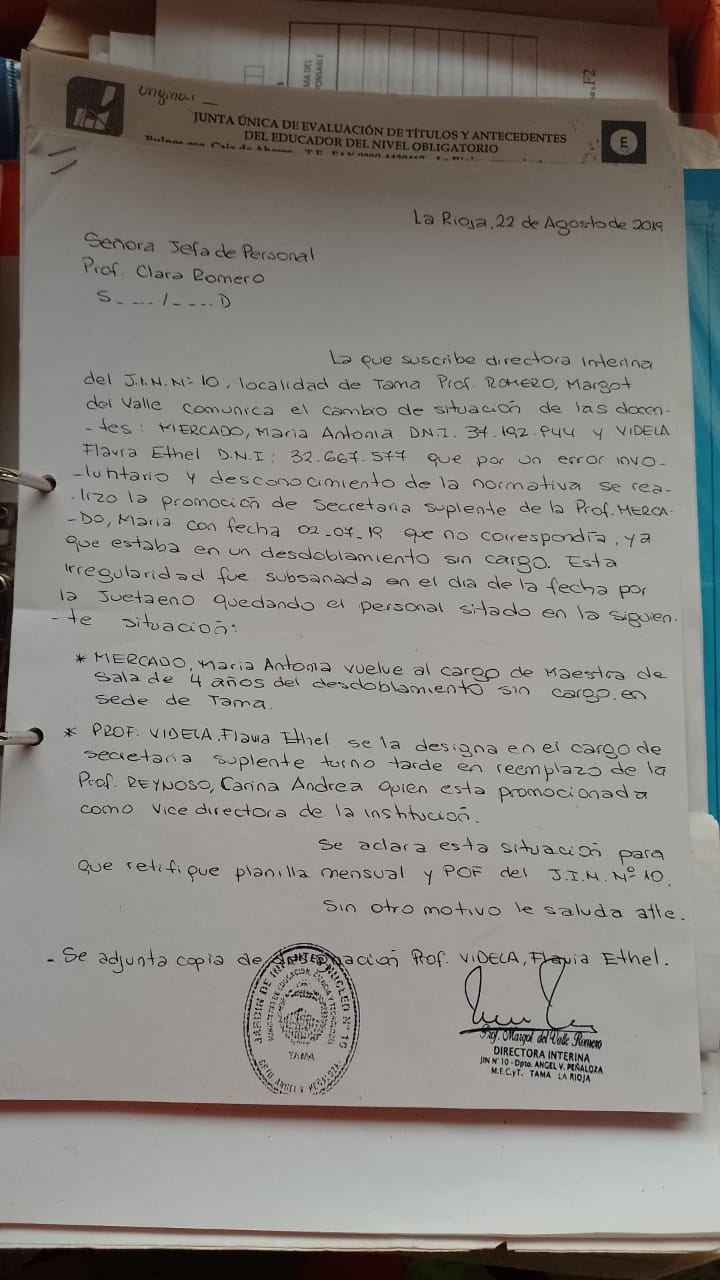 original —
JUNTA ÚNICA DE EVALUACIÓN DE TÍTULOS Y ANTECEDENTES
DEL EDUCADOR DEL NIVEL OBLIGATORIO
E
La Rioja, 22 de Agosto de 2019
Señora Jefa de Personal
Prof. Clara Romero
S_..../....D
La que suscribe directora Interina
del J.I.N. Nº 10, localidad de Tama Prof. ROMERO, Margot
del Valle comunica el cambio de situación de las docen-
-tes: MERCADO, Maria Antonia D.N.I. y VIDELA
Flavia Ethel D.N.I: 32.667.577 que por un error invo-
-luntario y desconocimiento de la normativa se rea-
-lizo la promoción de secretaria suplente de la Prof. MERCA-
-DO, Maria con fecha 02-07-19 que no correspondía, ya
que estaba en un desdoblamiento sin cargo. Esta
irregularidad fue subsanada en el dia de la fecha por
la Juetaeno quedando el personal sitado en la siguien-
-te situación:
* MERCADO, Maria Antonia vuelve al cargo de Maestra de
sala de 4 años del desdoblamiento sin cargo, en
sede de Tama.
* PROF. VIDELA, Flavia Ethel se la designa en el cargo de
secretaria suplente turno tarde en reemplazo de la
Prof. REYNOSO, Carina Andrea quien esta promocionada
como vice directora de la institución.
Se aclara esta situación para
que retifique planilla mensual y POF del J.I.N. Nº 10.
Sin otro motivo le saluda atte.
- Se adjunta copia de Prof. VIDELA, Flavia Ethel.
JARDIN DE INFANTES NUCLEO Nº 10
MINISTERIO DE EDUCACION, CIENCIA Y TECNOLOGIA
TAMA
DPTO. ANGEL V. PEÑALOZA
Prof. Margot del Valle Romero
DIRECTORA INTERINA
JIN Nº 10 - Dpto. ANGEL V. PEÑALOZA
M.E.C.yT. TAMA LA RIOJA